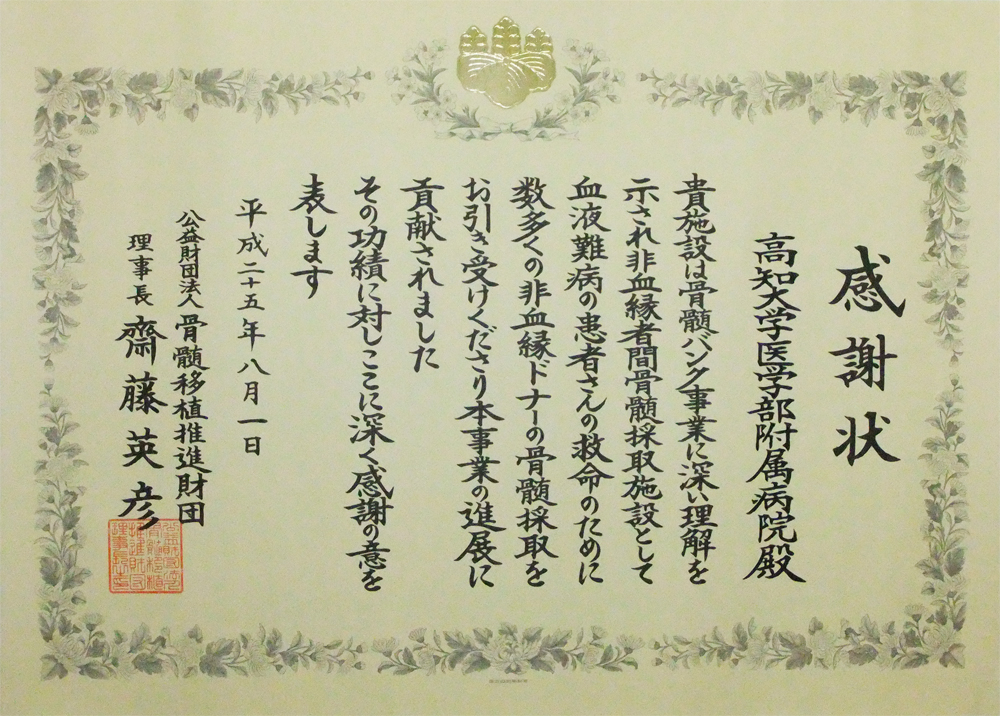 感謝状
高知大学医学部附属病院殿
貴施設は骨髄バンク事業に深い理解を
示され非血縁者間骨髄採取施設として
血液難病の患者さんの救命のために
数多くの非血縁ドナーの骨髄採取を
お引き受けくださり本事業の進展に
貢献されました
その功績に対しここに深く感謝の意を
表します
平成二十五年八月一日
公益財団法人 骨髄移植推進財団
理事長 齋藤英彦